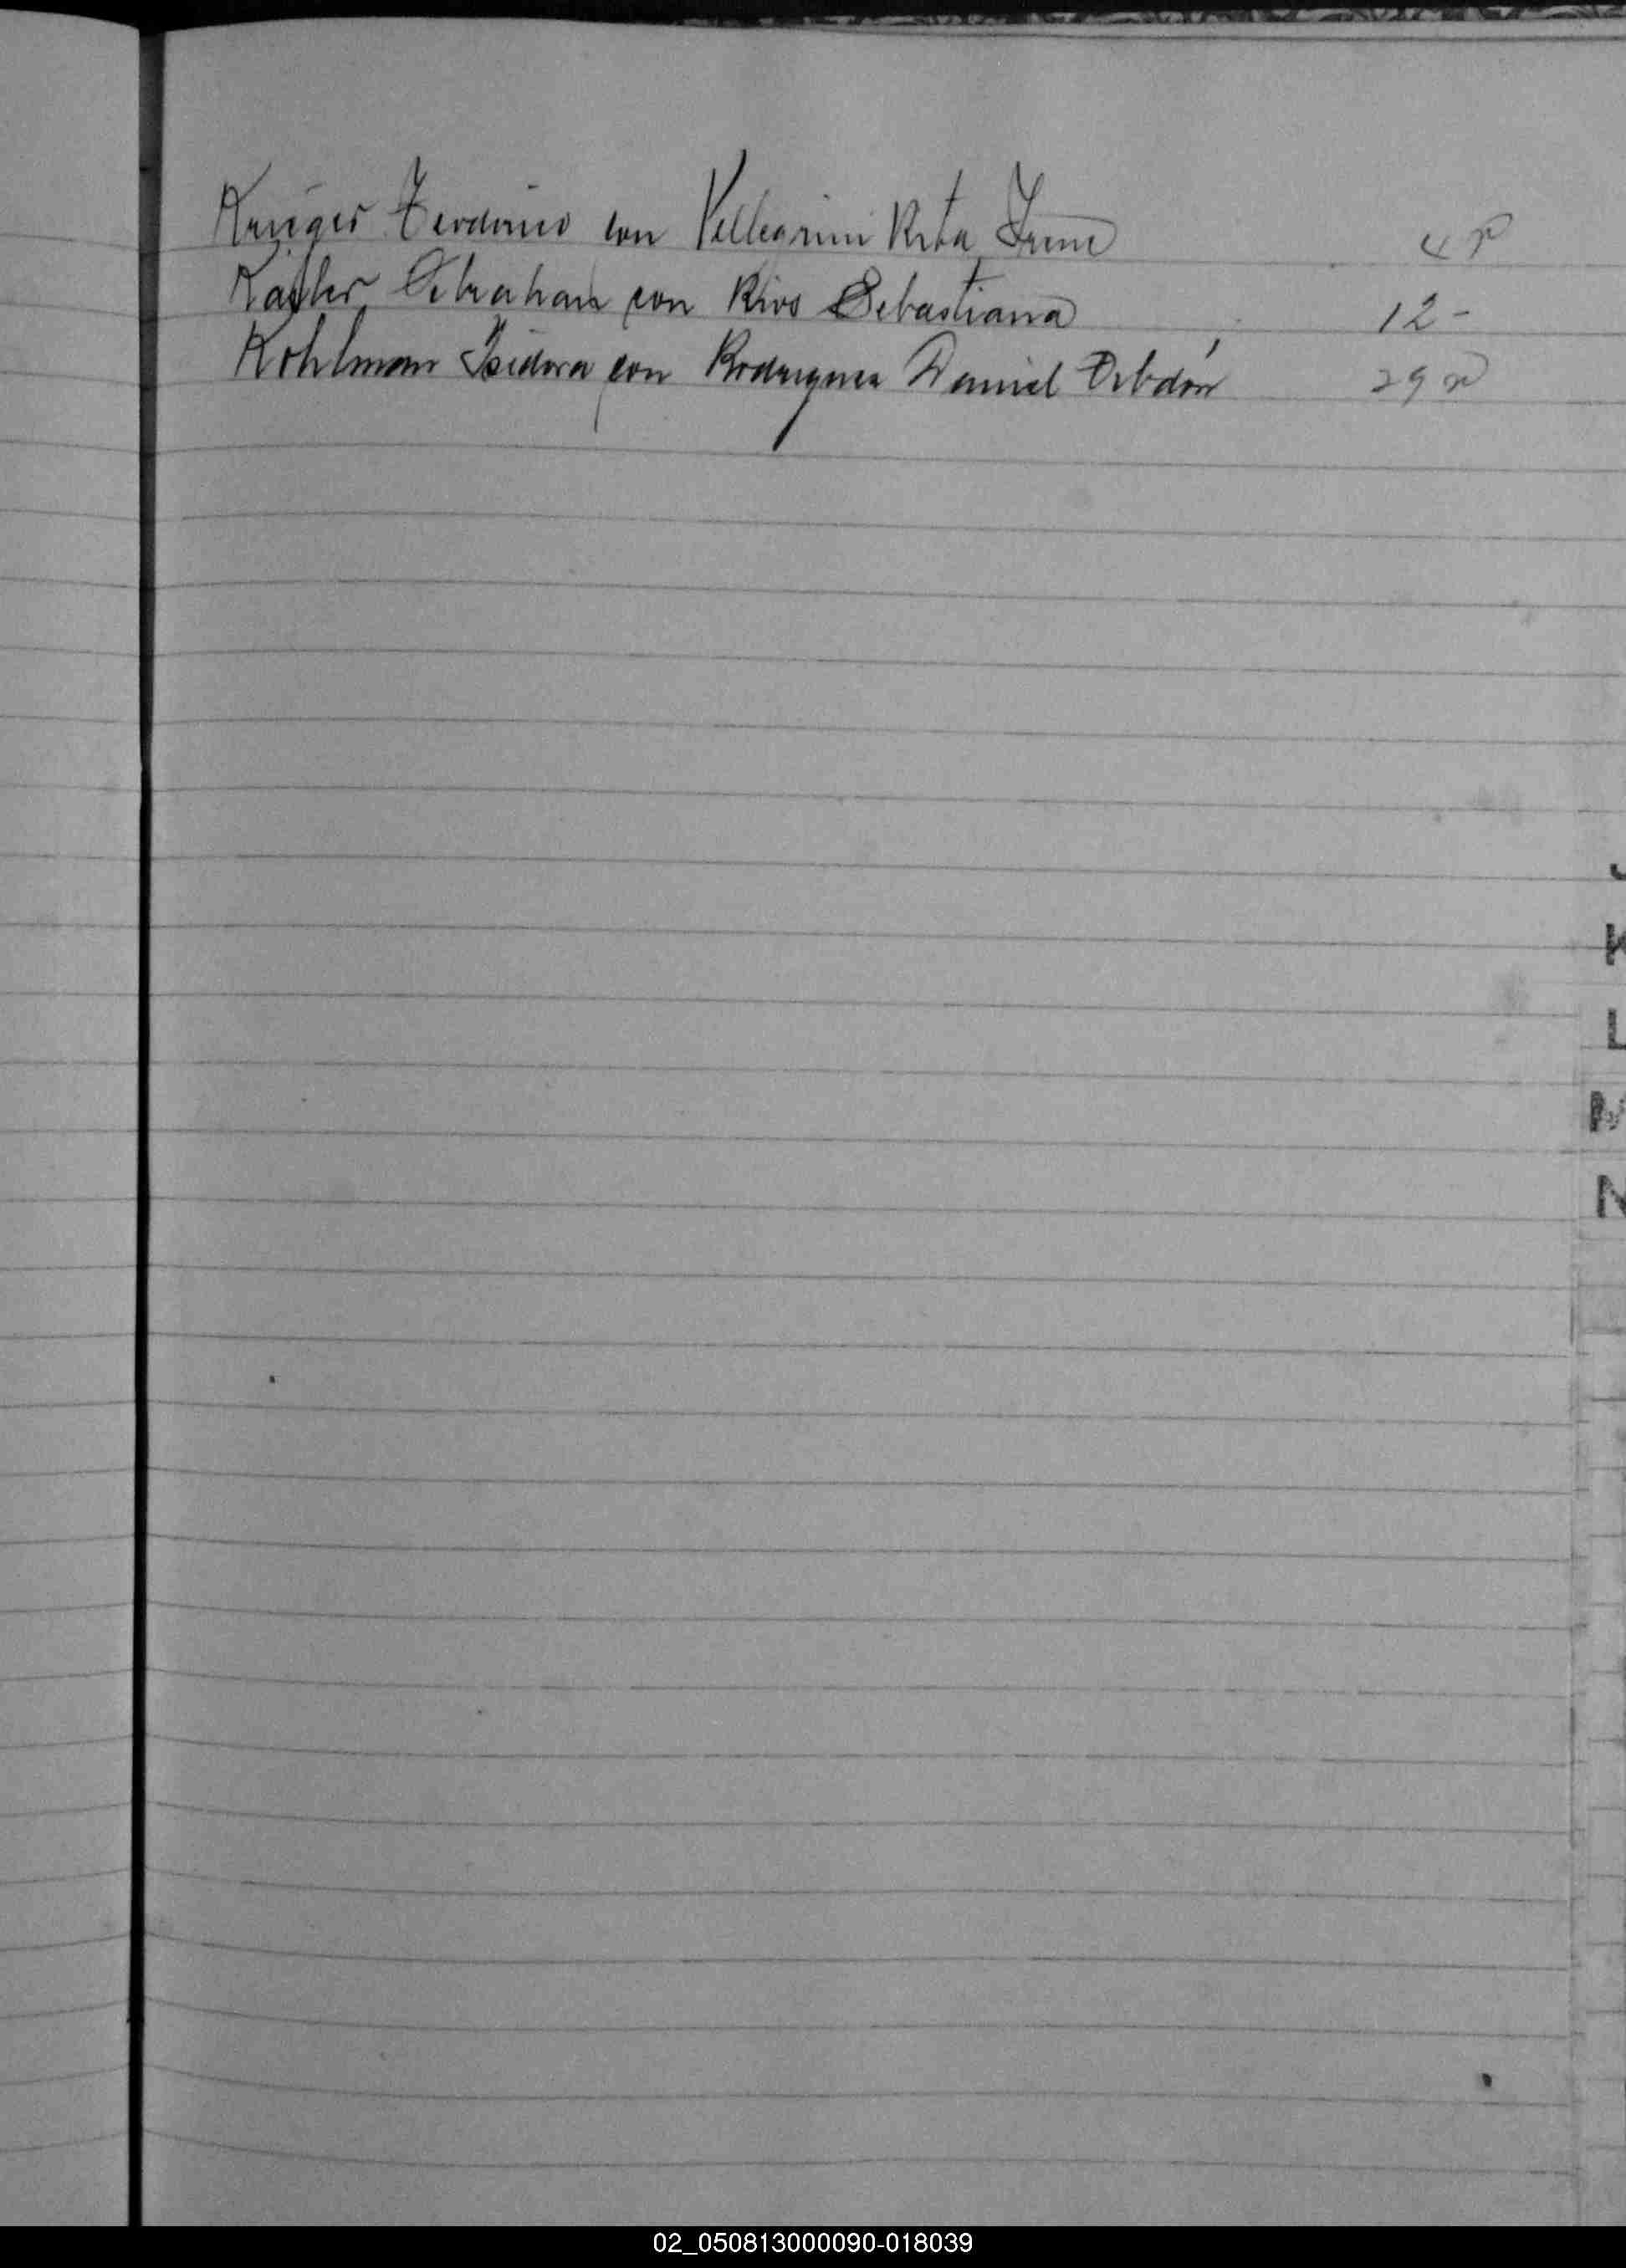 Kruger Teodorico con Pellegrini Rita Irene 4 v
Abraham con Rivo Sebastiana 12 -
Kohlman Isidora con Rodriguez Daniel Orbdón 29 v
J
K
L
M
N
02_050813000090-018039